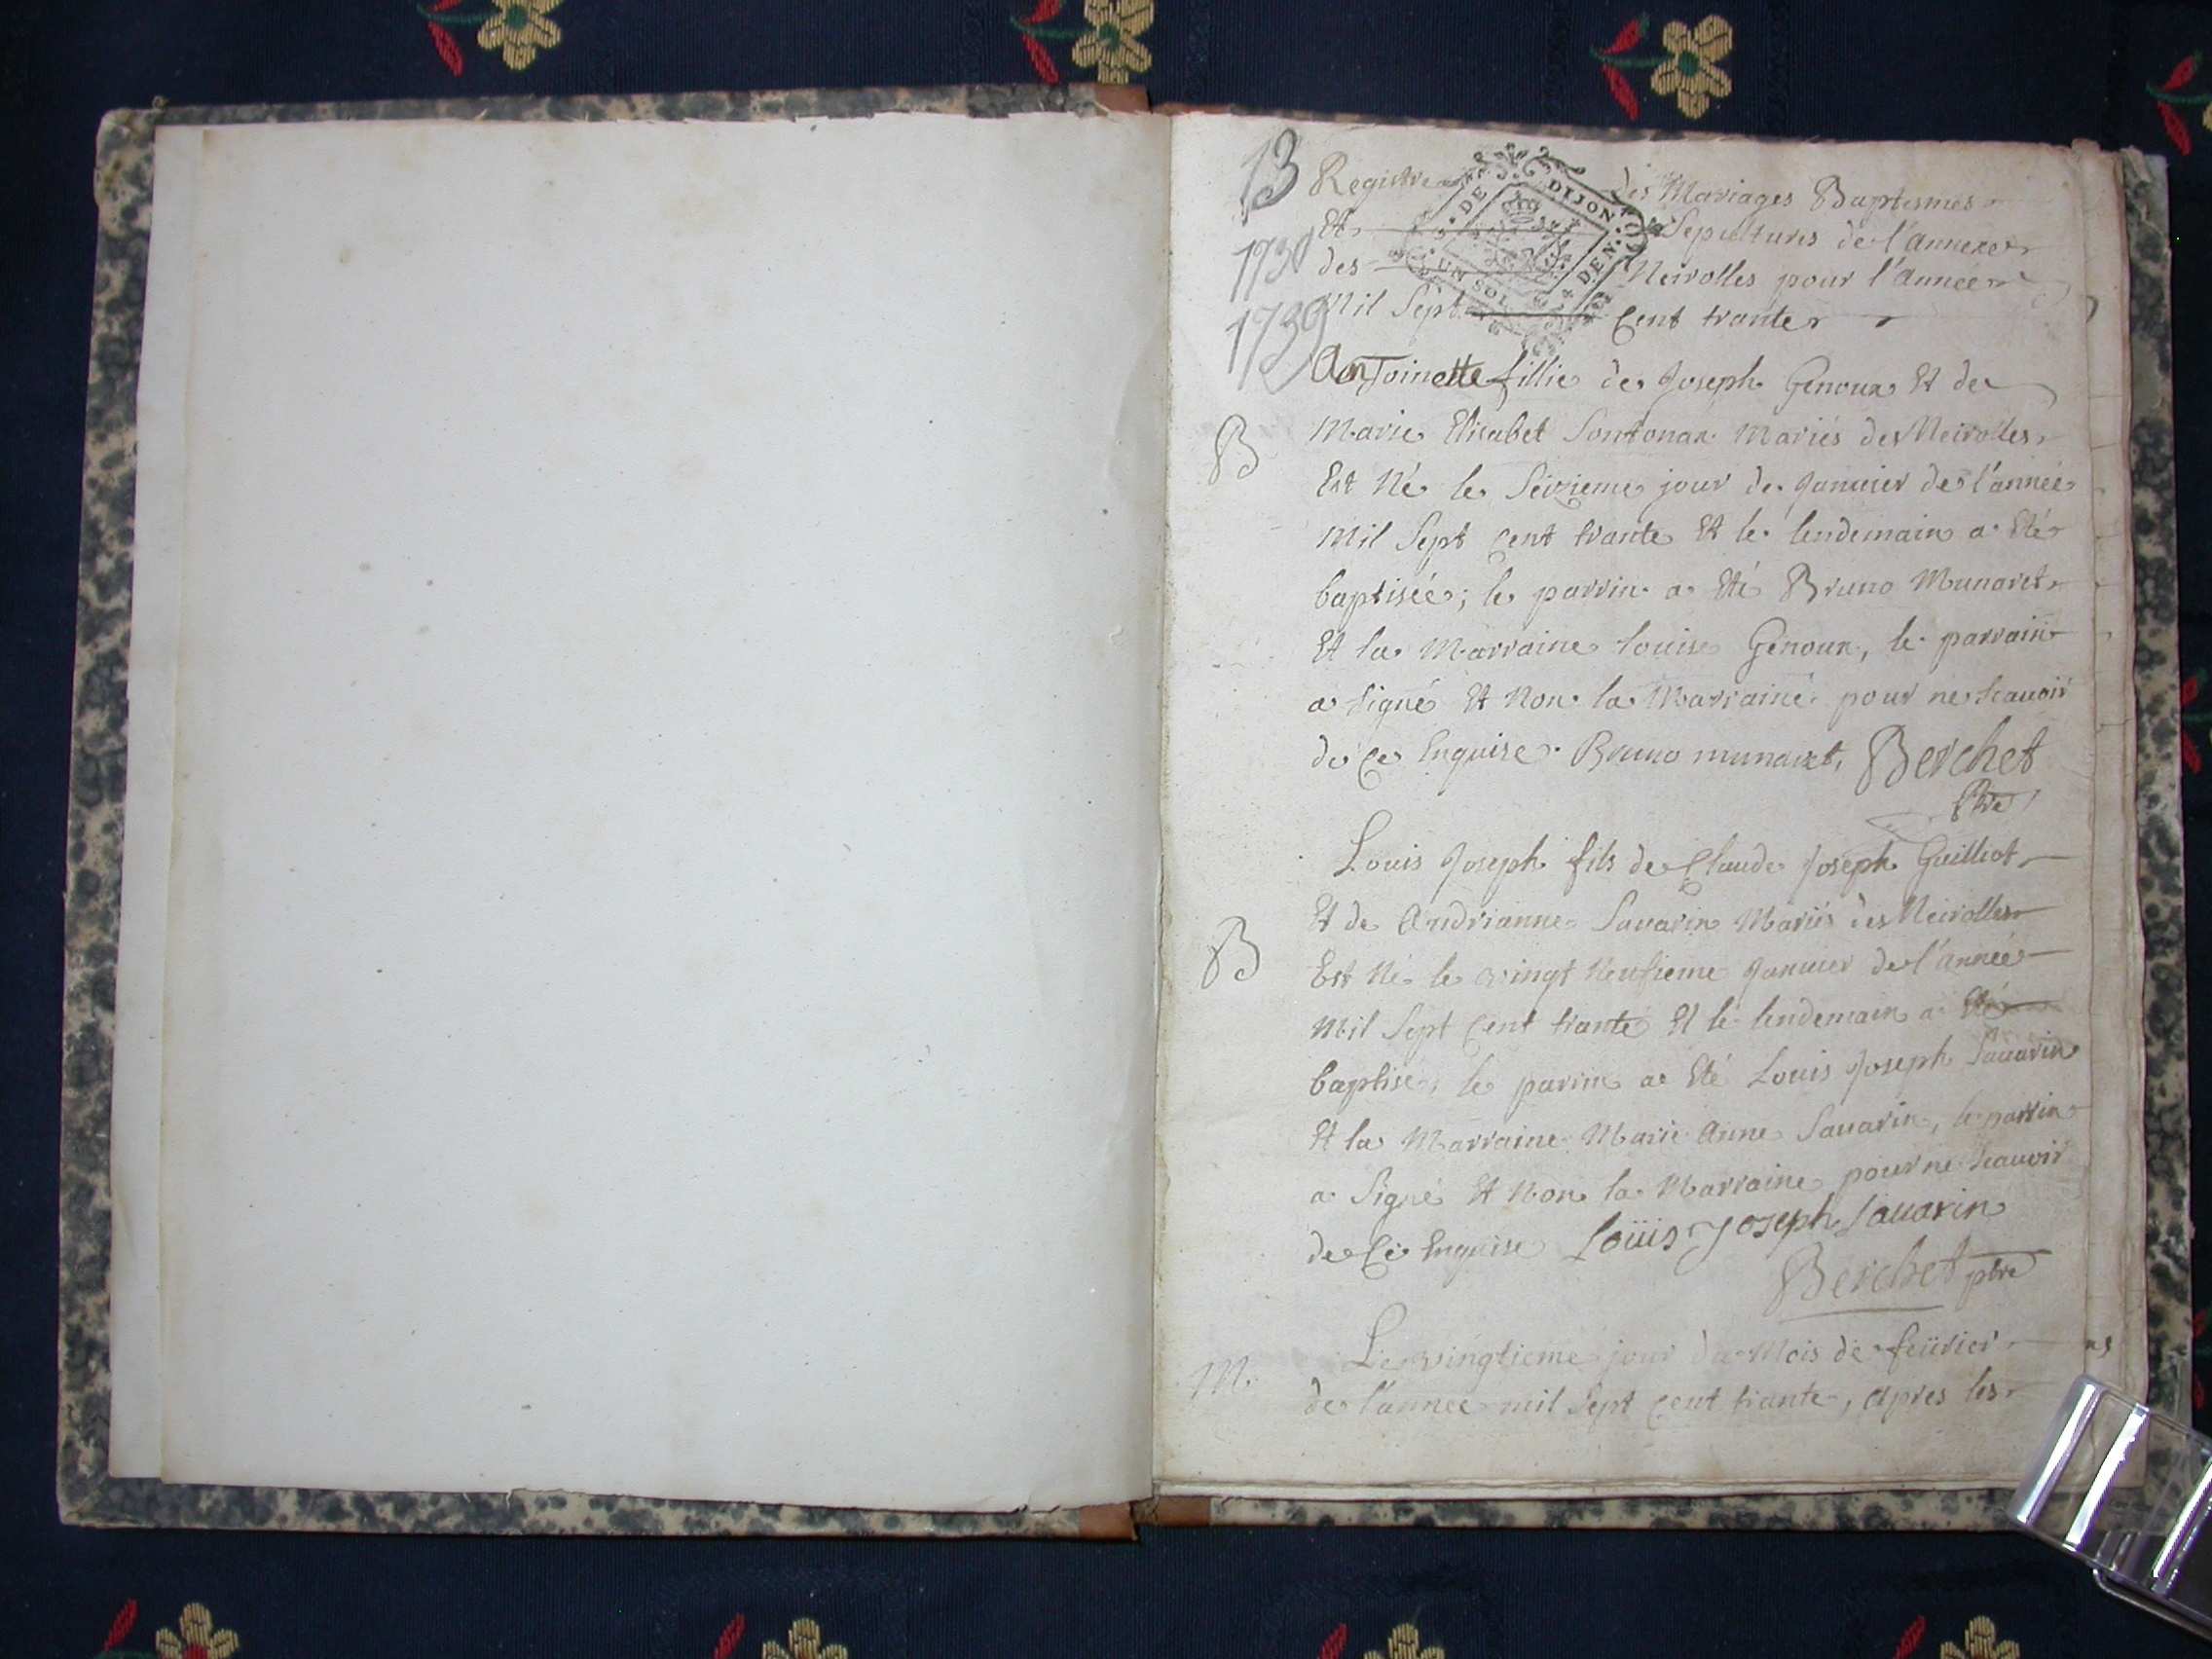 13 Registre des Mariages Baptesmes
Et Sepultures de l'annexe
1730 des Neirolles pour l'année
Mil Sept Cent trante
1739
DE DIJON
UN SOL 4 DEN.
Antoinette fillie de Joseph Genoux Et de
B Marie Elisabet Sontonax Mariés des Neirolles
Est Né le Seizieme jour de Januier de l'année
Mil Sept Cent trante Et le lendemain a Eté
baptisée; le parrin a Eté Bruno Munaret
Et la Marraine louise Genoux, le parrain
a signé Et Non la Marraine pour ne scauoir
de Ce Enquise. Bruno munaret, Berchet
Ptre
Louis Joseph fils de Claude Joseph Guilliot
Et de Andrianne Sauarin Mariés des Neirolles
B Est Né le vingt Neufieme Januier de l'année
Mil Sept Cent trante Et le lendemain a Eté
baptisé, le parrin a Eté Louis Joseph Sauarin
Et la Marraine Marie Anne Sauarin, le parrin
a Signé Et Non la Marraine pour ne scauoir
de Ce Enquise Loüis Joseph Sauarin
Berchet ptre
M. Le vingtieme jour du Mois de feürier
de l'annee mil Sept Cent trante, apres les